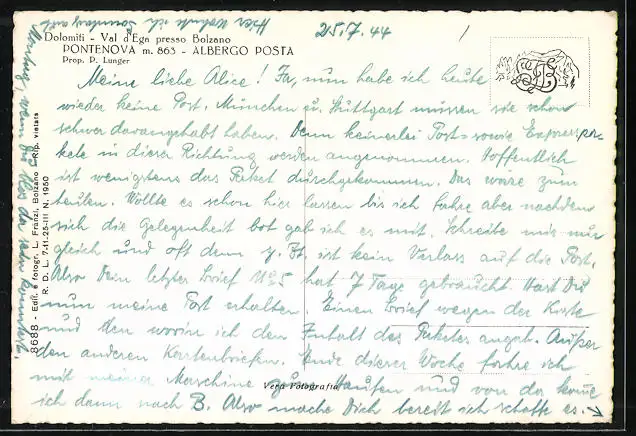 Hier wohnte ich Sonntag auf
25/7.44
Dolomiti - Val d'Ega presso Bolzano
PONTENOVA m. 863 - ALBERGO POSTA
Prop. P. Lunger
Meine liebe Alice! Ja, nun habe ich heute
wieder keine Post. München u. Stuttgart müssen sie schon
schwer drangehabt haben. Denn keinerlei Post- sowie Expresspa-
kete in dieser Richtung werden angenommen. Hoffentlich
ist wenigstens das Paket durchgekommen. Das wäre zum
heulen. Wollte es schon hier lassen bis ich fahre aber nachdem
sich die Gelegenheit bot gab ich es mit. Schreibe mir nur
gleich und oft denn z. Zt. ist kein Verlass auf die Post.
Also Dein letzter Brief No 5 hat 7 Tage gebraucht. Hast Du
nun meine Post erhalten. Einen Brief wegen der Kiste
und den worin ich den Inhalt des Paketes angab. Außer
den anderen Kartenbriefen. Ende dieser Woche fahre ich
mit meiner Maschine zu Haufen und von da komme
ich dann nach B. Also mache Dich bereit ich schaffe es.
8688 - Ediz. e fotogr. L. Fränzl, Bolzano - Rip. vietata
R. D. L. 7-11-25-III N. 1950
Vera Fotografia
wenn Du da sein könntest.